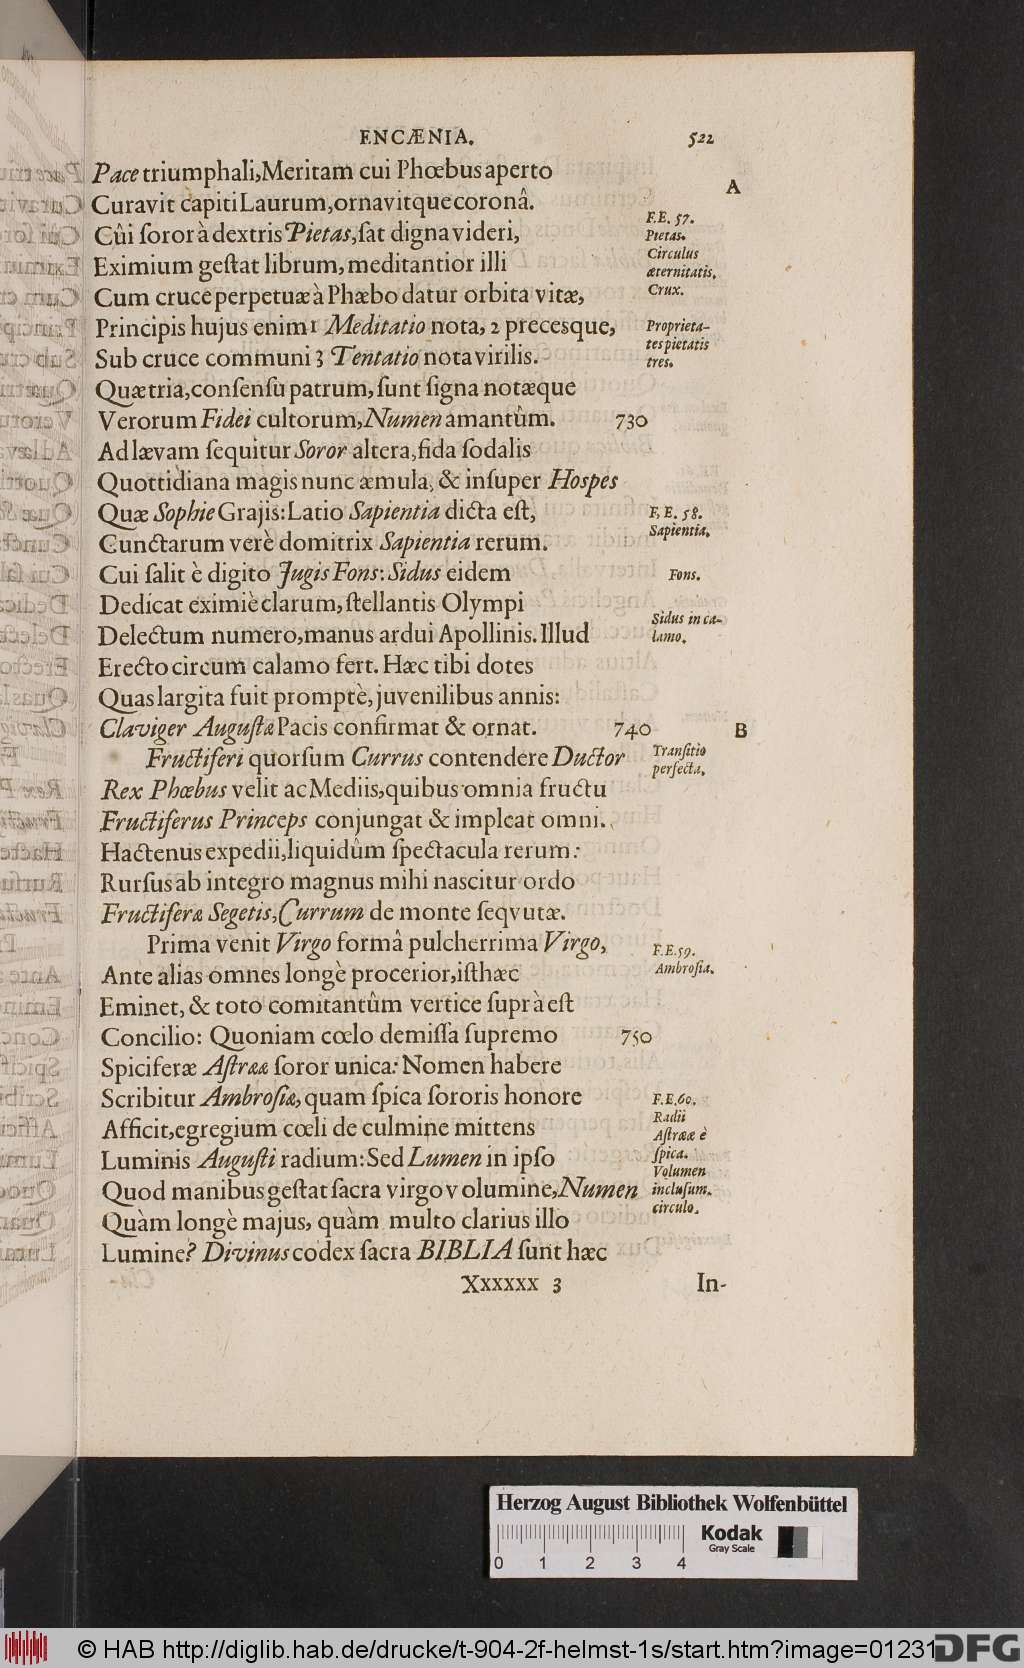 ENCÆNIA. 522
Pace triumphali, Meritam cui Phœbus aperto
A
Curavit capiti Laurum, ornavitque coronâ.
Cûi ſoror à dextris Pietas, ſat digna videri,
F.E. 57.
Pietas.
Eximium geſtat librum, meditantior illi
Circulus
æternitatis.
Cum cruce perpetuæ à Phæbo datur orbita vitæ,
Crux.
Principis hujus enim 1 Meditatio nota, 2 precesque,
Proprieta-
tes pietatis
Sub cruce communi 3 Tentatio nota virilis.
tres.
Quæ tria, conſenſu patrum, ſunt ſigna notæque
Verorum Fidei cultorum, Numen amantûm. 730
Ad lævam ſequitur Soror altera, fida ſodalis
Quottidiana magis nunc æmula, & inſuper Hospes
Quæ Sophie Grajis: Latio Sapientia dicta eſt,
F. E. 58.
Sapientia.
Cunctarum verè domitrix Sapientia rerum.
Cui ſalit è digito Jugis Fons: Sidus eidem
Fons.
Dedicat eximiè clarum, ſtellantis Olympi
Delectum numero, manus ardui Apollinis. Illud
Sidus in ca-
lamo.
Erecto circum calamo fert. Hæc tibi dotes
Quas largita fuit promptè, juvenilibus annis:
Claviger Auguſtæ Pacis confirmat & ornat. 740 B
Fructiferi quorſum Currus contendere Ductor
Tranſitio
perfecta.
Rex Phœbus velit ac Mediis, quibus omnia fructu
Fructiferus Princeps conjungat & impleat omni.
Hactenus expedii, liquidûm ſpectacula rerum:
Rurſus ab integro magnus mihi nascitur ordo
Fructiferæ Segetis, Currum de monte ſeqvutæ.
Prima venit Virgo formâ pulcherrima Virgo,
F.E. 59.
Ambroſia.
Ante alias omnes longè procerior, iſthæc
Eminet, & toto comitantûm vertice ſuprà eſt
Concilio: Quoniam cœlo demiſſa ſupremo 750
Spiciferæ Aſtrææ ſoror unica: Nomen habere
Scribitur Ambroſiæ, quam ſpica ſororis honore
F.E. 60.
Radii
Afficit, egregium cœli de culmine mittens
Aſtrææ è
ſpica.
Luminis Auguſti radium: Sed Lumen in ipſo
Volumen
Quod manibus geſtat ſacra virgo volumine, Numen
incluſum.
circulo.
Quàm longè majus, quàm multo clarius illo
Lumine? Divinus codex ſacra BIBLIA ſunt hæc
Xxxxxx 3 In-
Herzog August Bibliothek Wolfenbüttel
0 1 2 3 4
Kodak
Gray Scale
© HAB http://diglib.hab.de/drucke/t-904-2f-helmst-1s/start.htm?image=01231
DFG